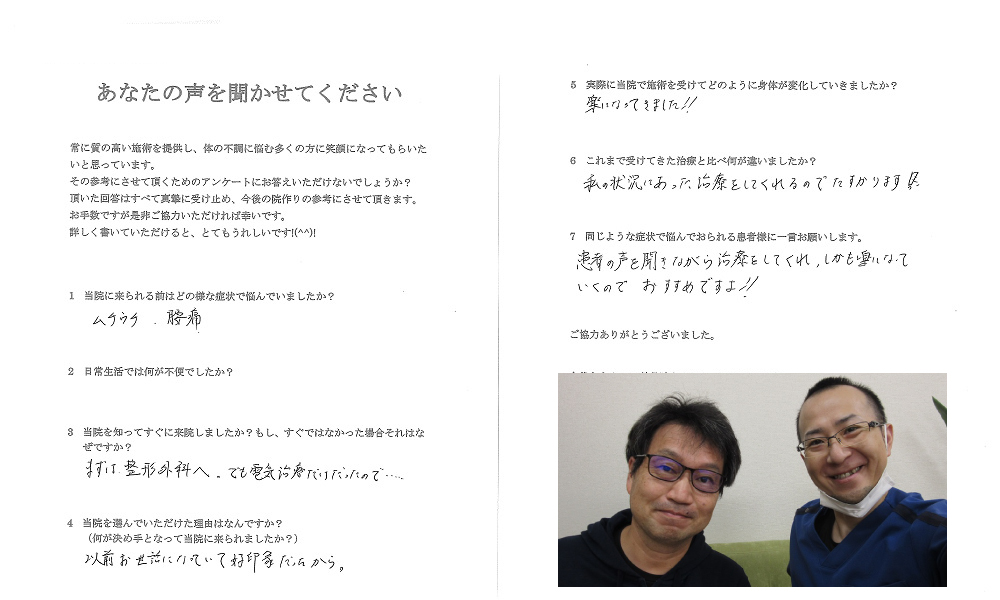 あなたの声を聞かせてください
常に質の高い施術を提供し、体の不調に悩む多くの方に笑顔になってもらいた
いと思っています。
その参考にさせて頂くためのアンケートにお答えいただけないでしょうか？
頂いた回答はすべて真摯に受け止め、今後の院作りの参考にさせて頂きます。
お手数ですが是非ご協力いただければ幸いです。
詳しく書いていただけると、とてもうれしいです!(^^)!
1 当院に来られる前はどの様な症状で悩んでいましたか？
ムチウチ．腰痛
2 日常生活では何が不便でしたか？
3 当院を知ってすぐに来院しましたか？もし、すぐではなかった場合それはな
ぜですか？
まずは整形外科へ。でも電気治療だけだったので……
4 当院を選んでいただけた理由はなんですか？
（何が決め手となって当院に来られましたか？）
以前お世話になっていて好印象だったから。
5 実際に当院で施術を受けてどのように身体が変化していきましたか？
楽になってきました!!
6 これまで受けてきた治療と比べ何が違いましたか？
私の状況にあった治療をしてくれるのでたすかります!!
7 同じような症状で悩んでおられる患者様に一言お願いします。
患者の声を聞きながら治療をしてくれ、しかも楽になって
いくので おすすめですよ!!
ご協力ありがとうございました。